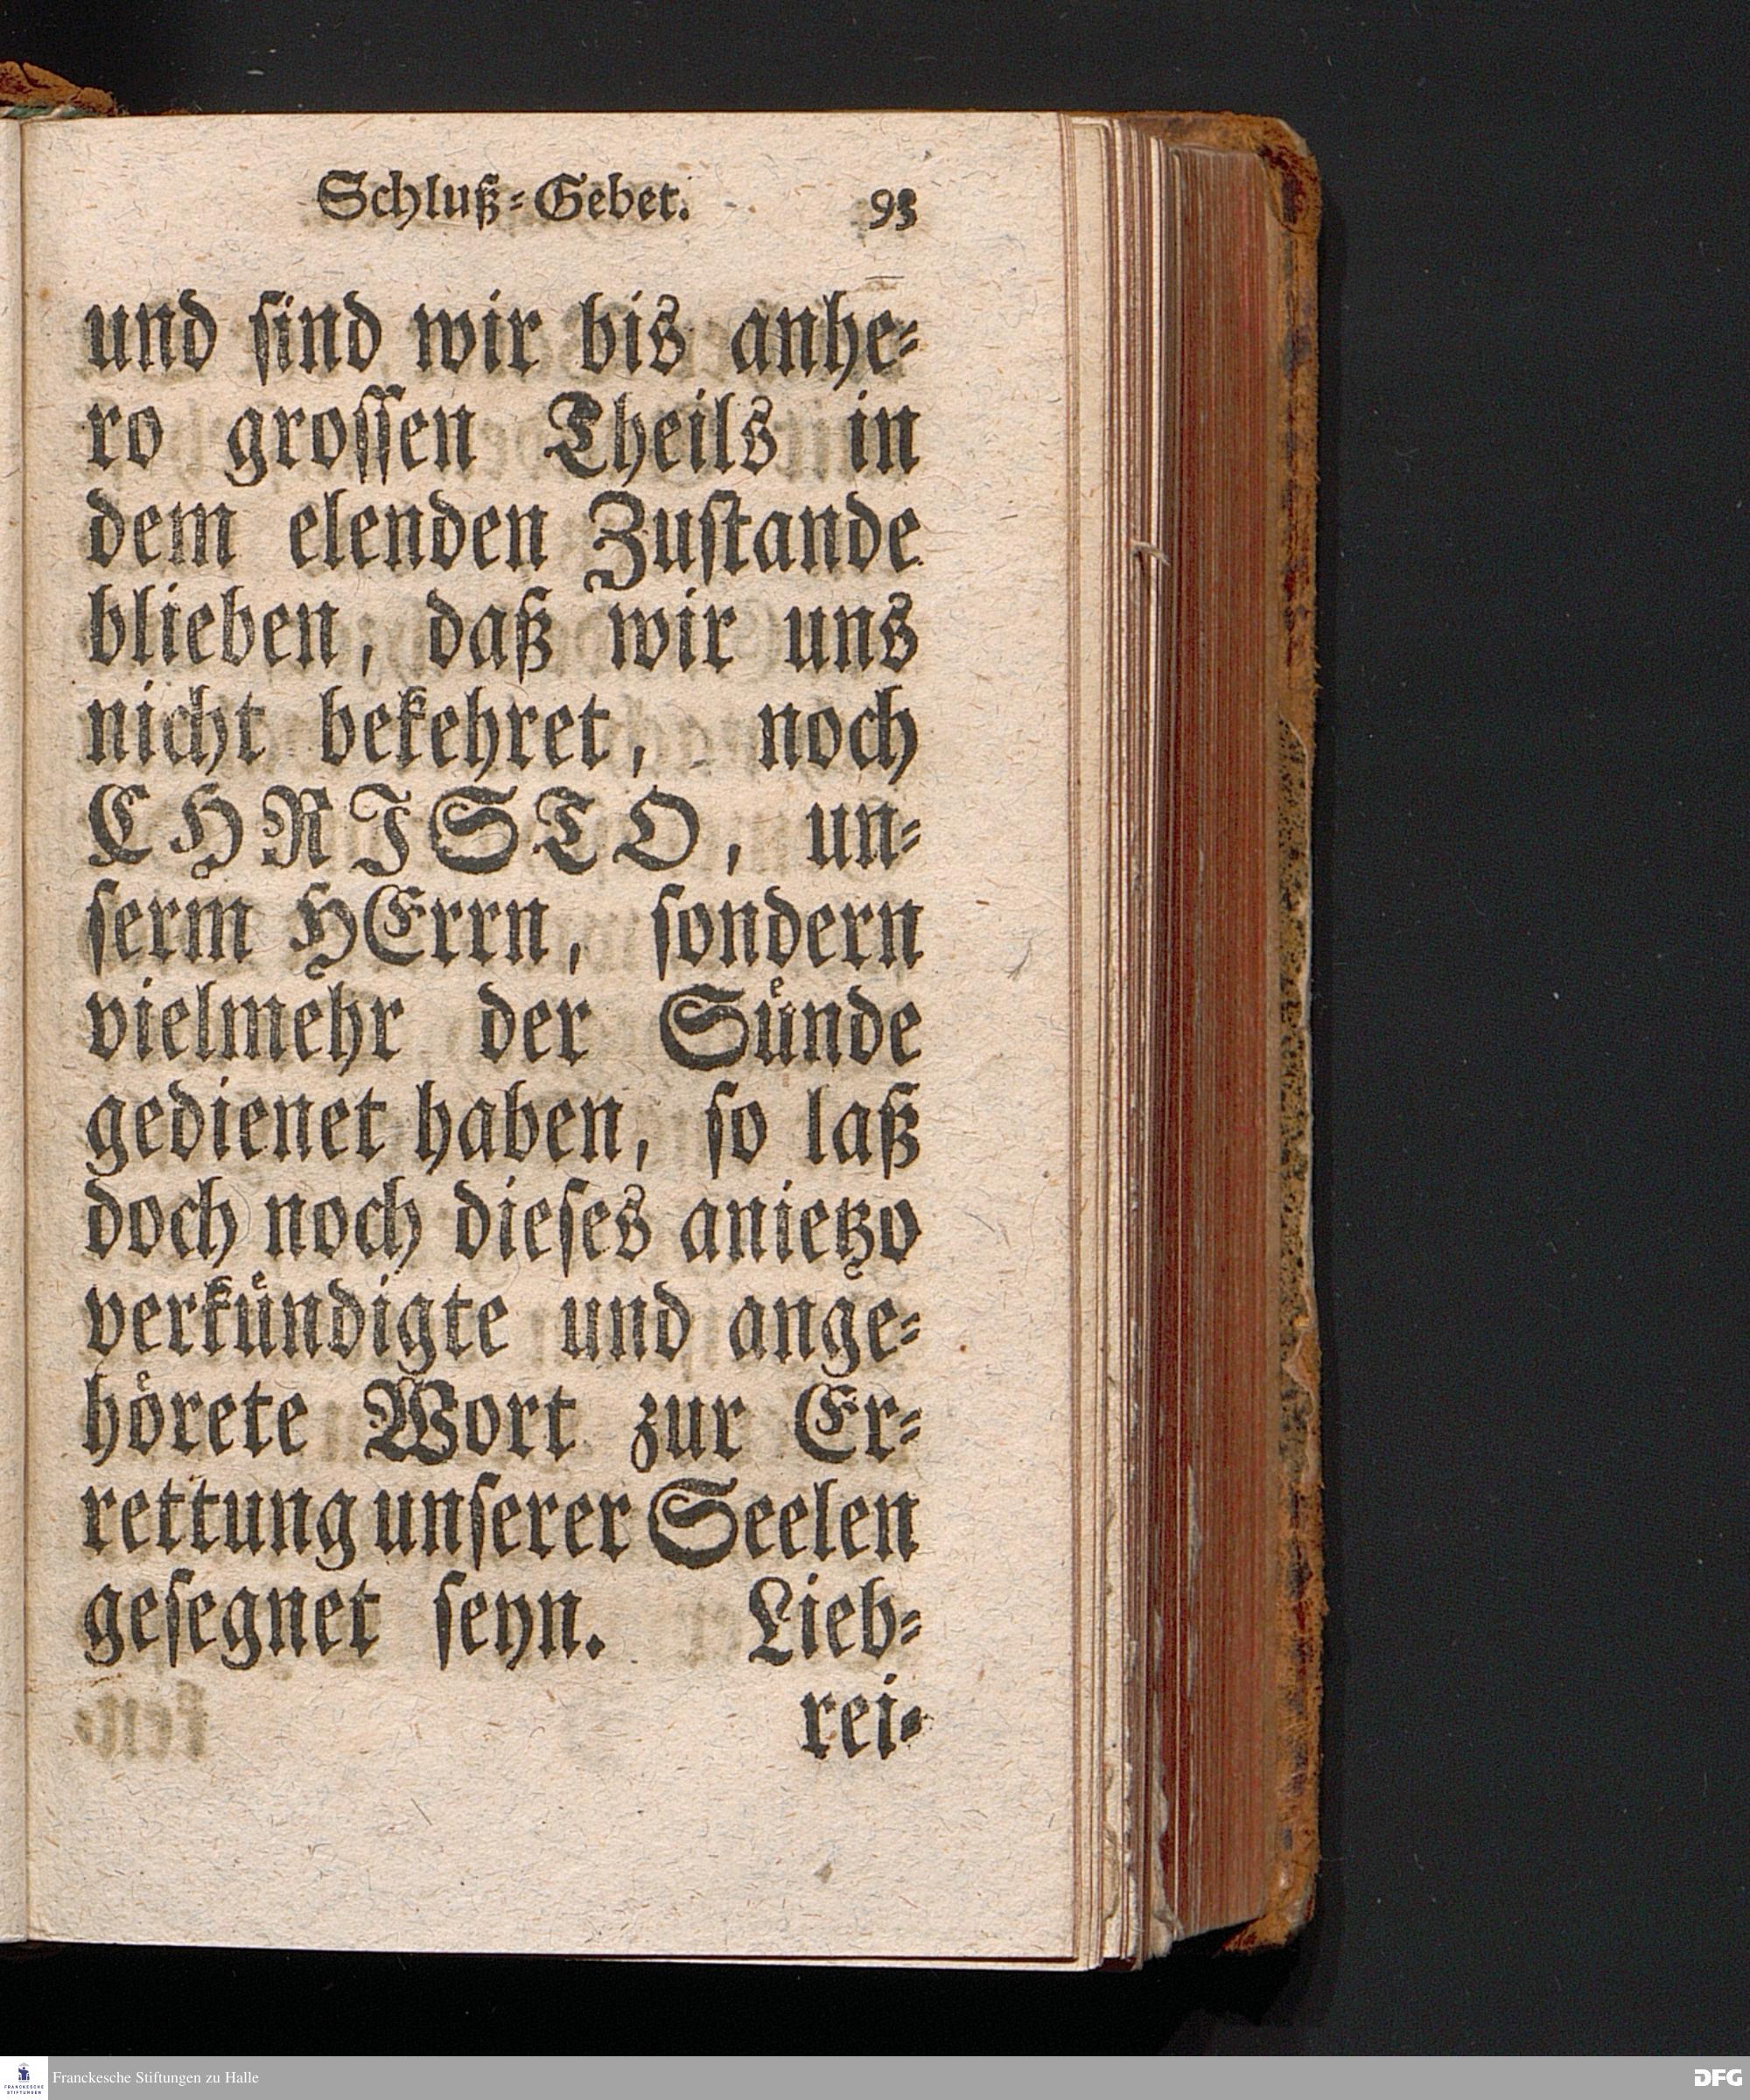 Schluß-Gebet. 93
und ſind wir bis anhe-
ro groſſen Theils in
dem elenden Zuſtande
blieben, daß wir uns
nicht bekehret, noch
CHRISTO, un-
ſerm HErrn, ſondern
vielmehr der Suͤnde
gedienet haben, ſo laß
doch noch dieſes anietzo
verkuͤndigte und ange-
hoͤrete Wort zur Er-
rettung unſerer Seelen
geſegnet ſeyn. Lieb-
rei-
FRANCKESCHE
STIFTUNGEN
Franckesche Stiftungen zu Halle
DFG